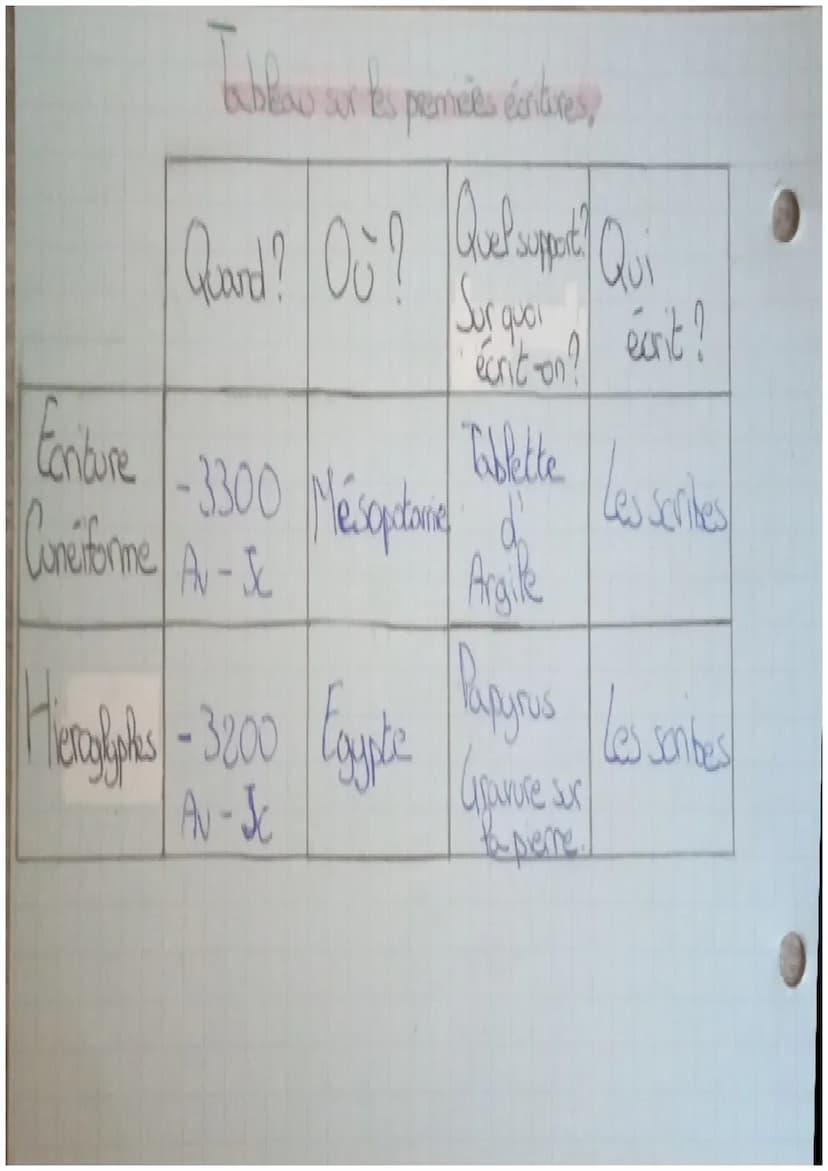 Tableau sur les premières écritures.
Quand?
Où?
Quel support?
Sur quoi
écrit-on?
Qui
écrit?
Ecriture
Cunéiforme
-3300
Av-Jc
Mésopotamie
Tablette
d'
Argile
Les scribes
Hieroglyphes
-3200
Av-Jc
Egypte
Papyrus
Gravure sur
la pierre.
Les scribes